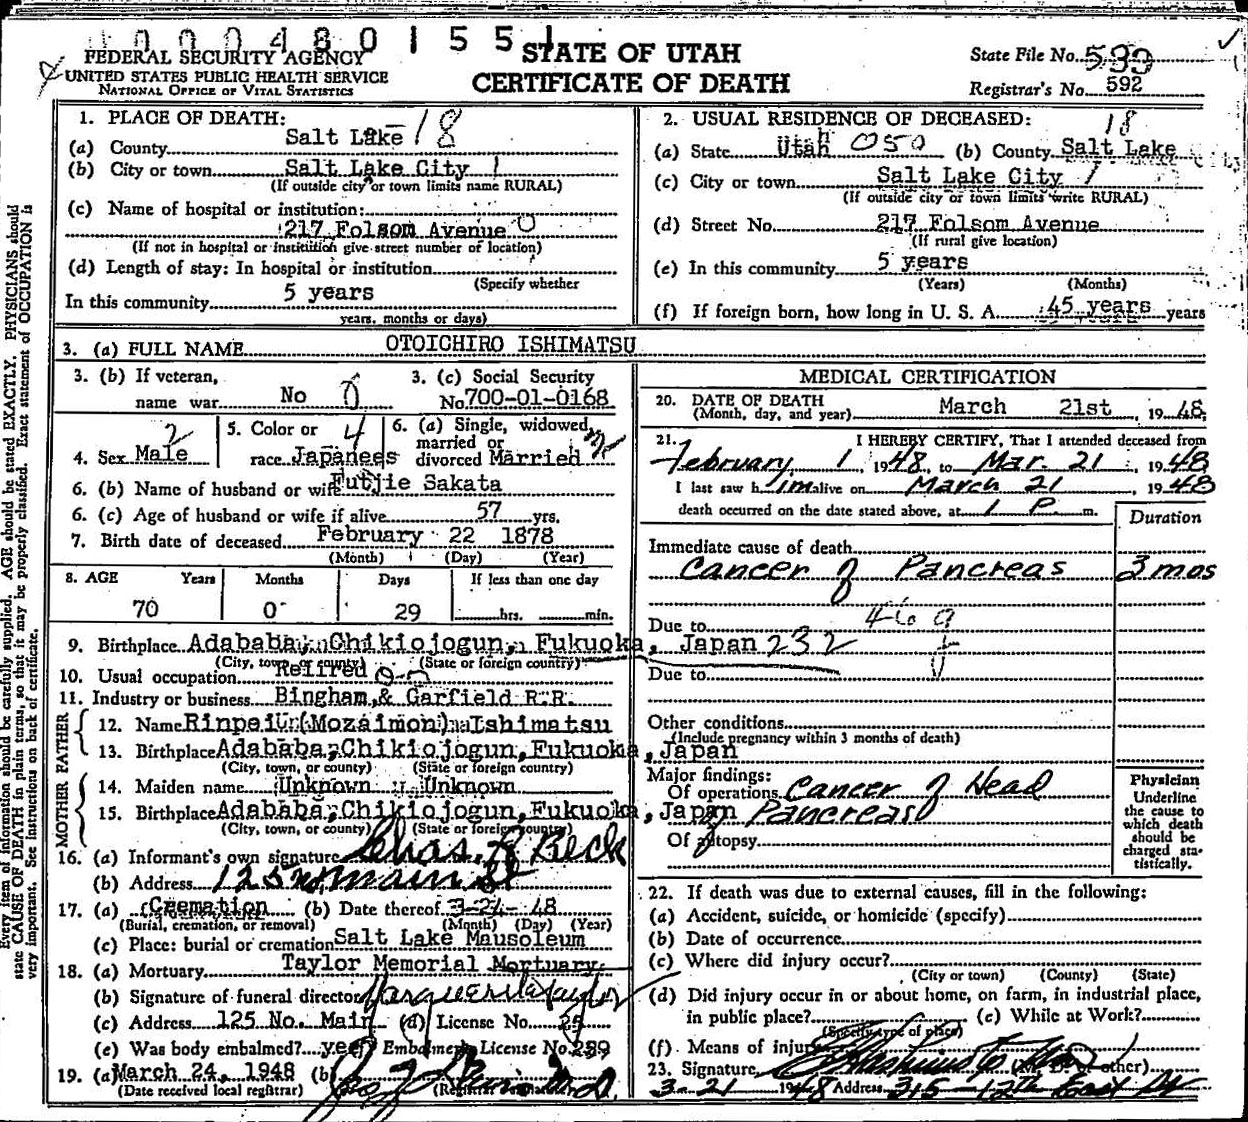 0004801551
FEDERAL SECURITY AGENCY
UNITED STATES PUBLIC HEALTH SERVICE
NATIONAL OFFICE OF VITAL STATISTICS
STATE OF UTAH
CERTIFICATE OF DEATH
State File No. 583
Registrar's No. 592
1. PLACE OF DEATH:
(a) County Salt Lake 18
(b) City or town Salt Lake City 1
(If outside city or town limits name RURAL)
(c) Name of hospital or institution:
217 Folsom Avenue 0
(If not in hospital or institution give street number of location)
(d) Length of stay: In hospital or institution
(Specify whether
In this community 5 years
years, months or days)
2. USUAL RESIDENCE OF DECEASED:
(a) State Utah 050 (b) County Salt Lake 18
(c) City or town Salt Lake City 1
(If outside city or town limits write RURAL)
(d) Street No. 217 Folsom Avenue
(If rural give location)
(e) In this community 5 years
(Years) (Months)
(f) If foreign born, how long in U. S. A. 45 years years
3. (a) FULL NAME OTOICHIRO ISHIMATSU
3. (b) If veteran, name war No 0
3. (c) Social Security No. 700-01-0168
4. Sex Male 2
5. Color or race Japanees 4
6. (a) Single, widowed, married or divorced Married
6. (b) Name of husband or wife Futjie Sakata
6. (c) Age of husband or wife if alive 57 yrs.
7. Birth date of deceased February 22 1878
(Month) (Day) (Year)
8. AGE Years Months Days If less than one day
70 0 29 hrs. min.
9. Birthplace Adababa, Chikiojogun, Fukuoka, Japan
(City, town, or county) (State or foreign country)
10. Usual occupation Retired
11. Industry or business Bingham & Garfield R.R.
FATHER
12. Name Rinpei (Mozaimon) Ishimatsu
13. Birthplace Adababa, Chikiojogun, Fukuoka, Japan
(City, town, or county) (State or foreign country)
MOTHER
14. Maiden name Unknown Unknown
15. Birthplace Adababa, Chikiojogun, Fukuoka, Japan
(City, town, or county) (State or foreign country)
16. (a) Informant's own signature Chas R Beck
(b) Address 125 No Main St
17. (a) Cremation (b) Date thereof 3-24-48
(Burial, cremation, or removal) (Month) (Day) (Year)
(c) Place: burial or cremation Salt Lake Mausoleum
18. (a) Mortuary Taylor Memorial Mortuary
(b) Signature of funeral director Marguerite Taylor
(c) Address 125 No. Main (d) License No. 25
(e) Was body embalmed? yes Embalmers License No. 259
19. (a) March 24, 1948 (b)
(Date received local registrar) (Registrar's signature)
MEDICAL CERTIFICATION
20. DATE OF DEATH
(Month, day, and year) March 21st, 1948
21. I HEREBY CERTIFY, That I attended deceased from
February 1, 1948, to Mar. 21, 1948
I last saw him alive on March 21, 1948
death occurred on the date stated above, at 1 P. m.
Duration
Immediate cause of death
Cancer of Pancreas 3 mos
Due to 46 g
232
Due to
Other conditions
(Include pregnancy within 3 months of death)
Major findings:
Of operations Cancer of Head
of Pancreas
Of autopsy
Physician
Underline
the cause to
which death
should be
charged sta-
tistically.
22. If death was due to external causes, fill in the following:
(a) Accident, suicide, or homicide (specify)
(b) Date of occurrence
(c) Where did injury occur?
(City or town) (County) (State)
(d) Did injury occur in or about home, on farm, in industrial place,
in public place? (e) While at Work?
(Specify type of place)
(f) Means of injury
23. Signature (M. D. or other)
3-21 1948 Address 315 - 12th East
Every item of information should be carefully supplied. AGE should be stated EXACTLY. PHYSICIANS should
state CAUSE OF DEATH in plain terms, so that it may be properly classified. Exact statement of OCCUPATION is
very important. See instructions on back of certificate.